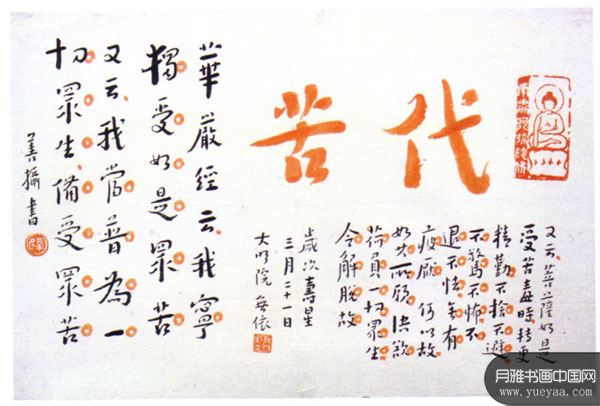 代苦
又云、菩薩如是
受苦毒時轉更
精勤不捨不避
不驚不怖不
退不怯無有
疲厭何以故
如其所願決欲
荷負一切眾生
令解脫故
歲次壽星
三月二十一日
大明院無依
華嚴經云、我寧
獨受如是眾苦
又云、我當普為一
切眾生備受眾苦
善攝書
月雅书画中国网
www.yueyaa.com